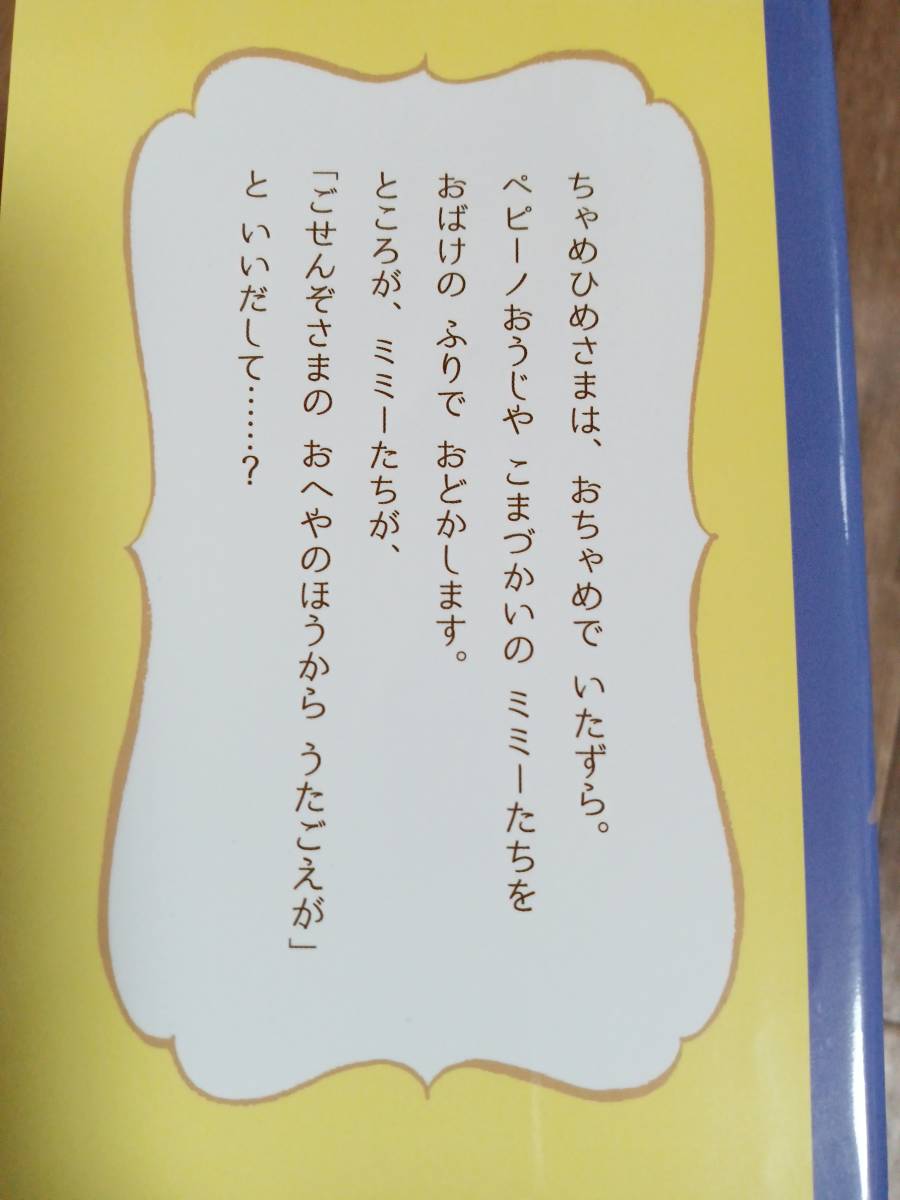 ちゃめひめさまは、おちゃめで いたずら。
ペピーノおうじや こまづかいの ミミーたちを
おばけの ふりで おどかします。
ところが、ミミーたちが、
「ごせんぞさまの おへやのほうから うたごえが」
と いいだして……？